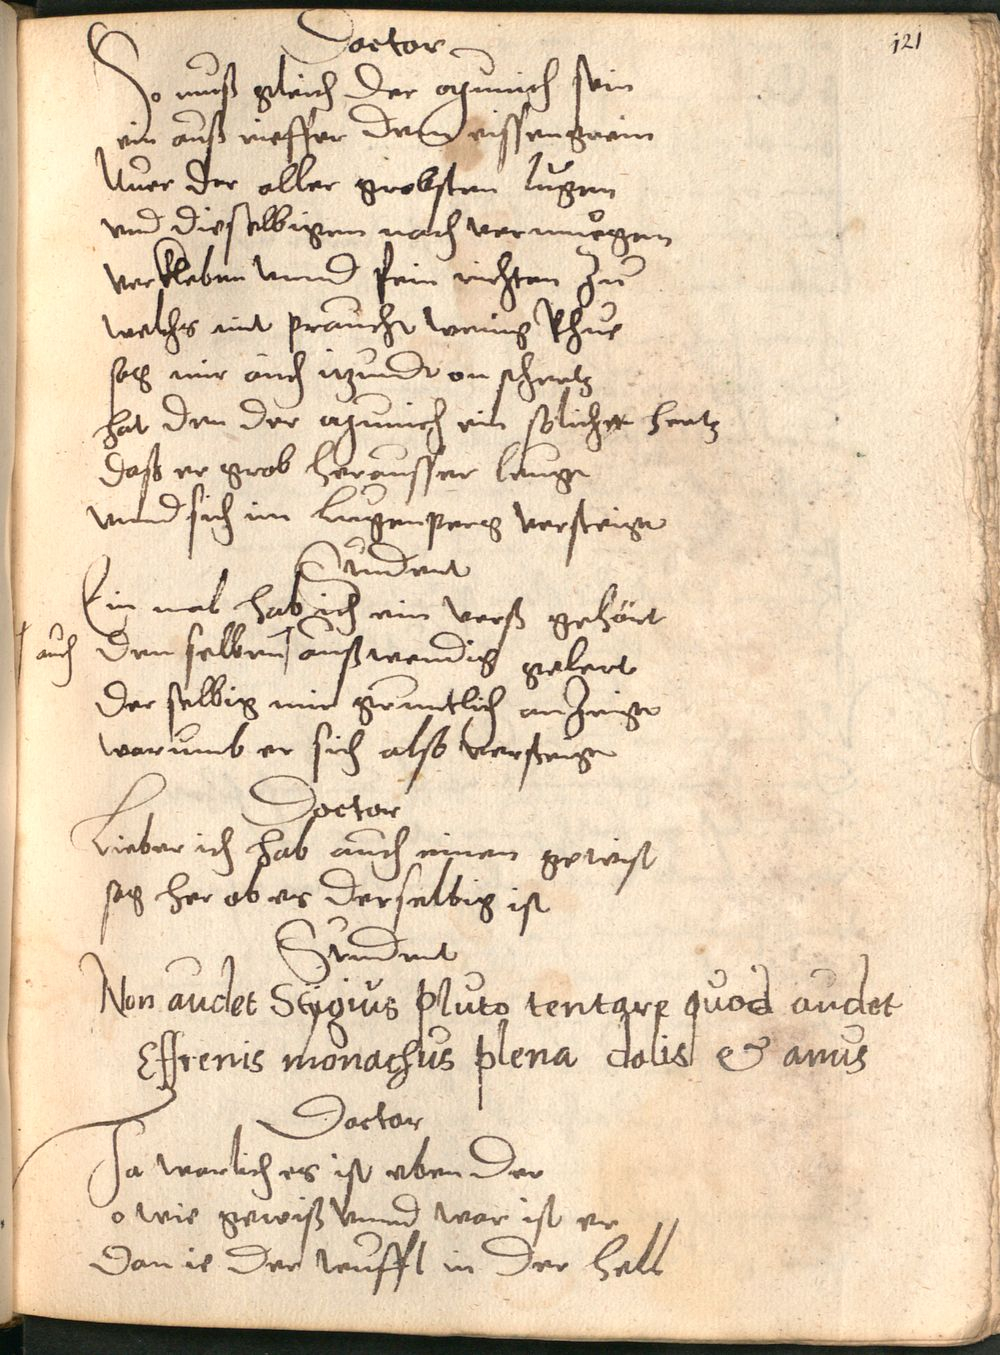 121
Doctor
So muß gleich der münich sein
ein auß rieffer dem eissengrein
Nuer der aller grobsten lugen
vnd dieselbigen nach vermuegen
verkleben vnnd fein richten zu
welchs nit praucht wenig khue
sag mir auch itzundt on schertz
hat den der münich ein solichs hertz
daß er grob heraussen leuge
vnnd sich im lugenperg versteige
Student
Ein mal hab ich ein verß gehört
auch den selben außwendig gelert
der selbig mir gruntlich anzeige
warumb er sich also versteige
Doctor
Lieber ich hab auch einen gewist
sag her ob es derselbig ist
Student
Non audet Stygius Pluto tentare quod audet
Effrenis monachus plena dolis & anus
Doctor
Ja warlich es ist eben der
o wie gewiß vnnd war ist er
dan ie der teuffl in der hell